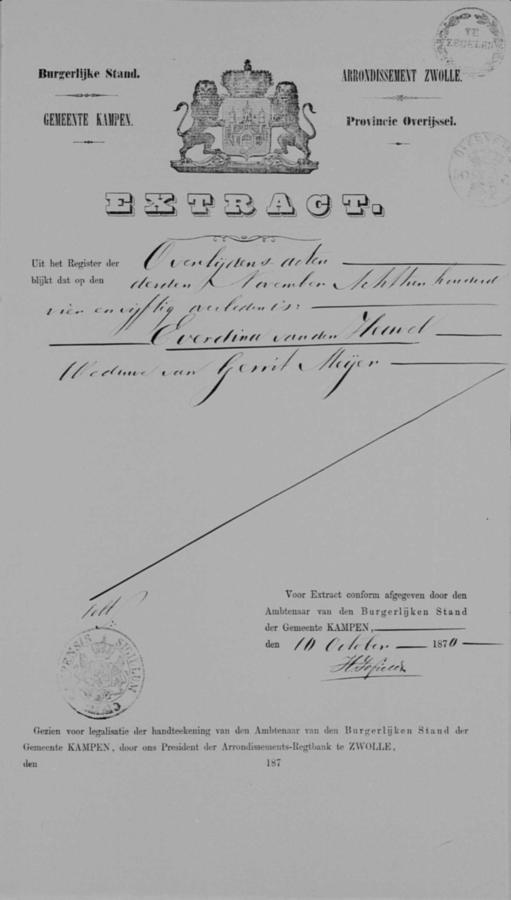 TE
ZEGELEN
Burgerlijke Stand.
GEMEENTE KAMPEN.
ARRONDISSEMENT ZWOLLE.
Provincie Overijssel.
EXTRACT.
Uit het Register der Overlijdens acten
blijkt dat op den derden November Achttien honderd
vier en vijftig overleden is:
Everdina van den Heuvel
Weduwe van Gerrit Meijer
Voor Extract conform afgegeven door den
Ambtenaar van den Burgerlijken Stand
der Gemeente KAMPEN,
den 10 October 1870
SIGILLUM
Gezien voor legalisatie der handteekening van den Ambtenaar van den Burgerlijken Stand der
Gemeente KAMPEN, door ons President der Arrondissements-Regtbank te ZWOLLE,
den 187